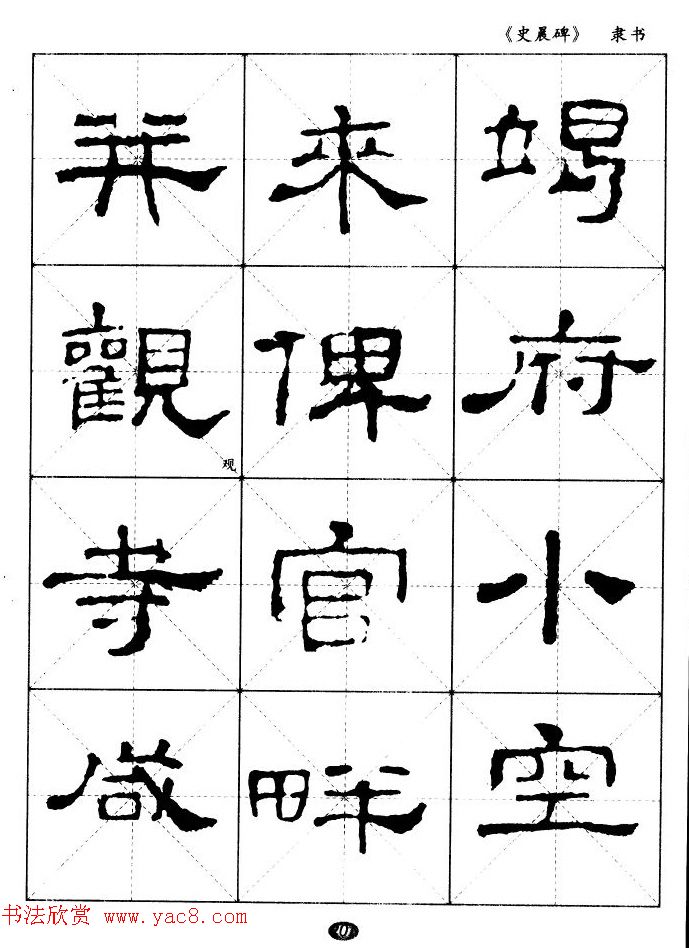 《史晨碑》 隶书
竭府小空
来俾官畔
并觀寺咸
观
书法欣赏 www.yac8.com